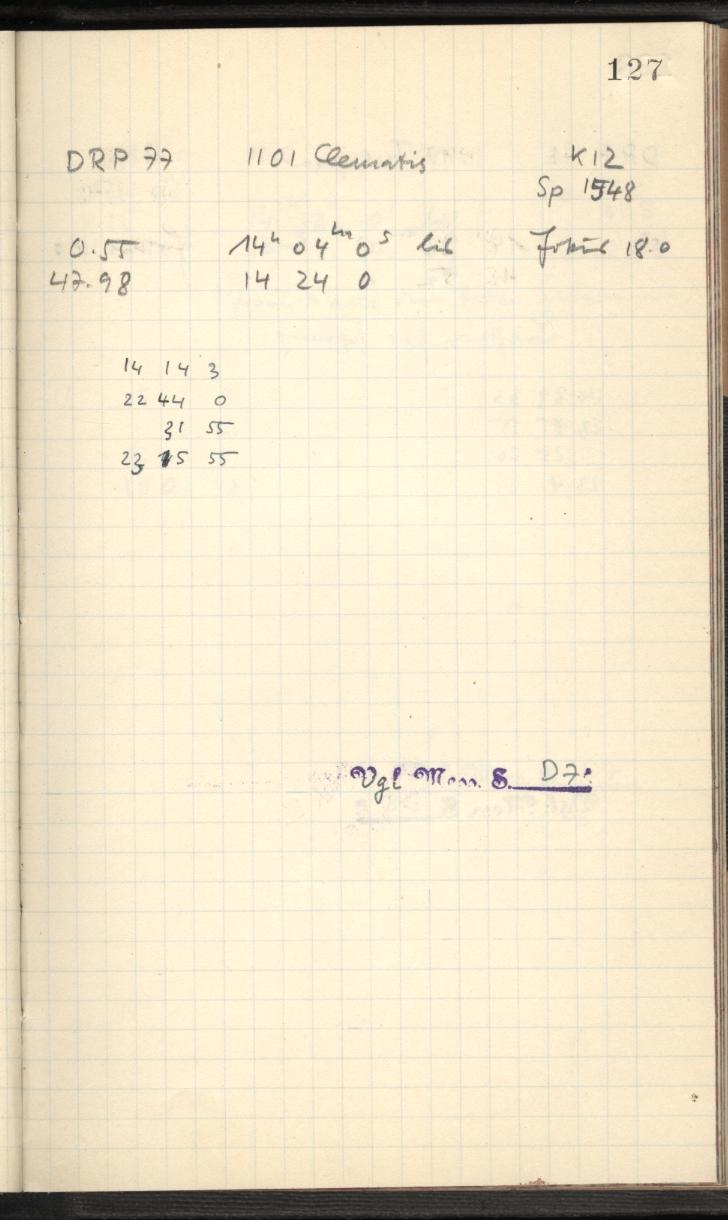 127
DRP 77 1101 Clematis K12
Sp 1548
0.55 14h 04m 0s bis Fokus 18.0
47.98 14 24 0
14 14 3
22 44 0
31 55
23 15 55
Vgl. Mess. S. D7